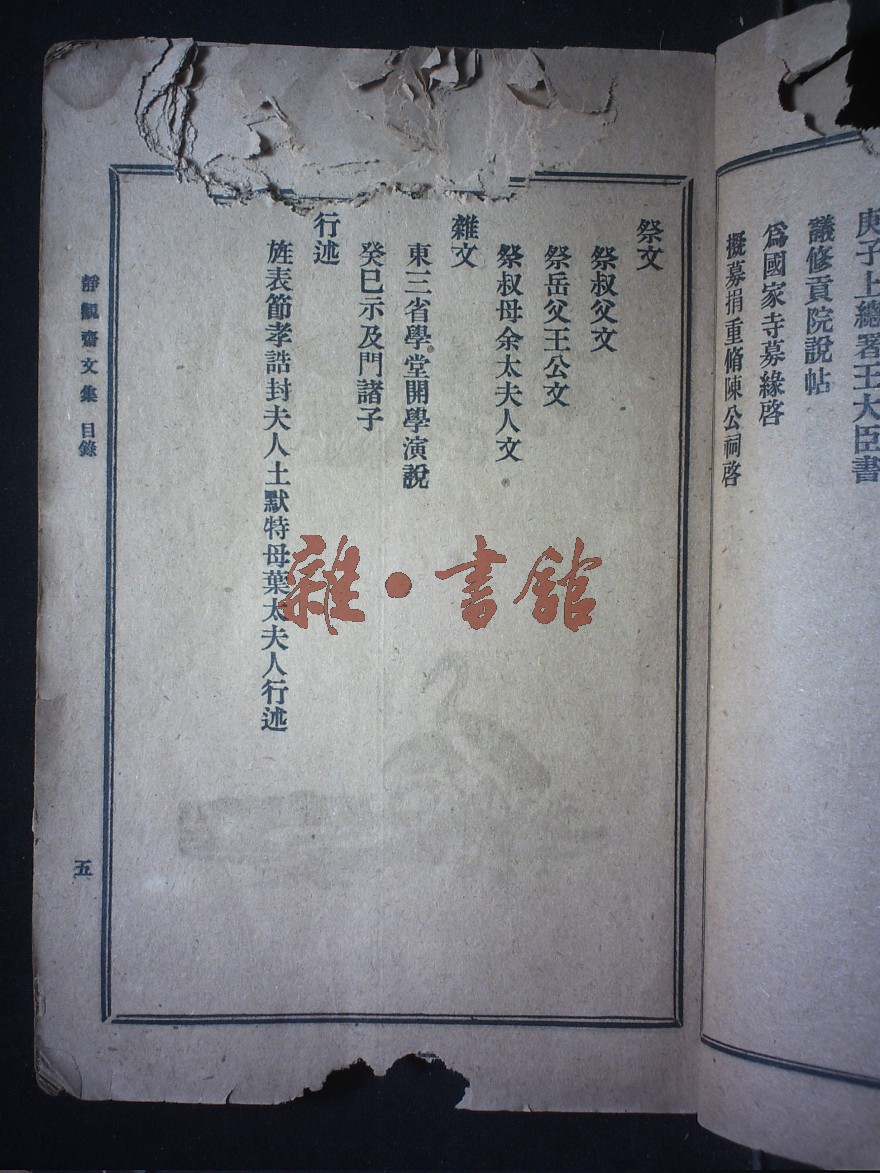 庚子上總署王大臣書
議修貢院說帖
爲國家寺募緣啓
擬募捐重脩陳公祠啓
祭文
祭叔父文
祭岳父王公文
祭叔母余太夫人文
雜文
東三省學堂開學演說
癸巳示及門諸子
行述
旌表節孝誥封夫人土默特母葉太夫人行述
靜觀齋文集 目錄
五
雜·書館